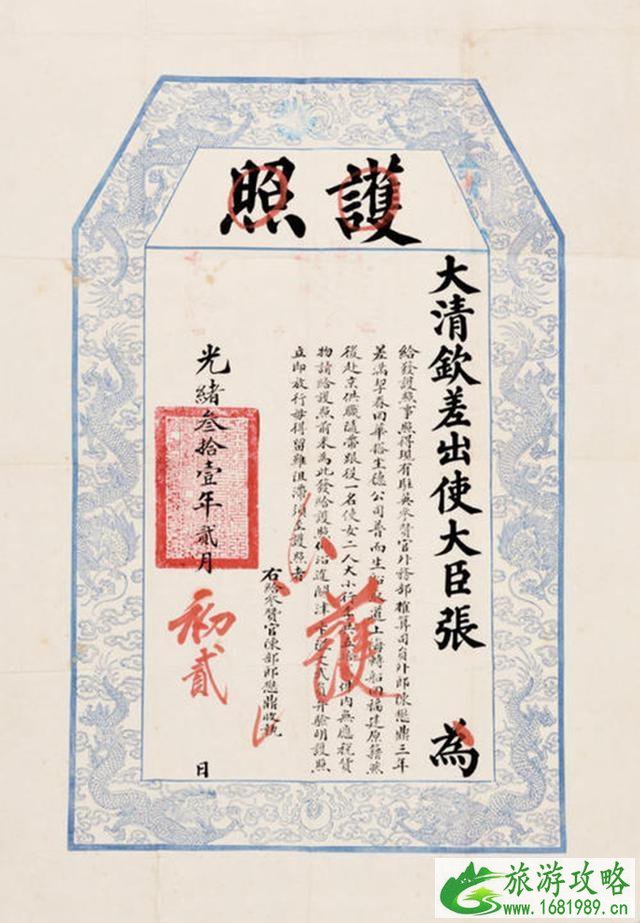 護照
大清欽差出使大臣張 為
給發護照事照得現有駐英參贊官外務部榷算司員外郎陳懋鼎三年
差滿挈眷回華搭坐德公司普而生
道上海轉船回福建原籍然
後赴京供職隨帶跟役一名使女二人大小行李共五
件內無應稅貨
物請給護照前來為此發給護照仰沿途關津
驗明護照
立即放行毋得留難阻滯須至護照者
右給參贊官陳部郎懋鼎收執
護
光緒叁拾壹年貳月
初貳
日
旅游攻略
www.1681989.cn